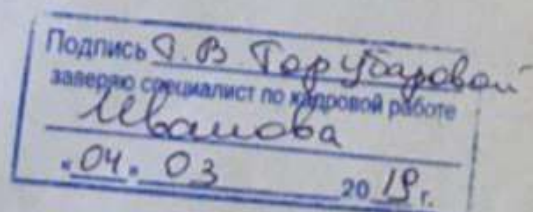 Подпись Г. В. Горубаровой
заверяю специалист по кадровой работе
Иванова
"04" 03 2019 г.